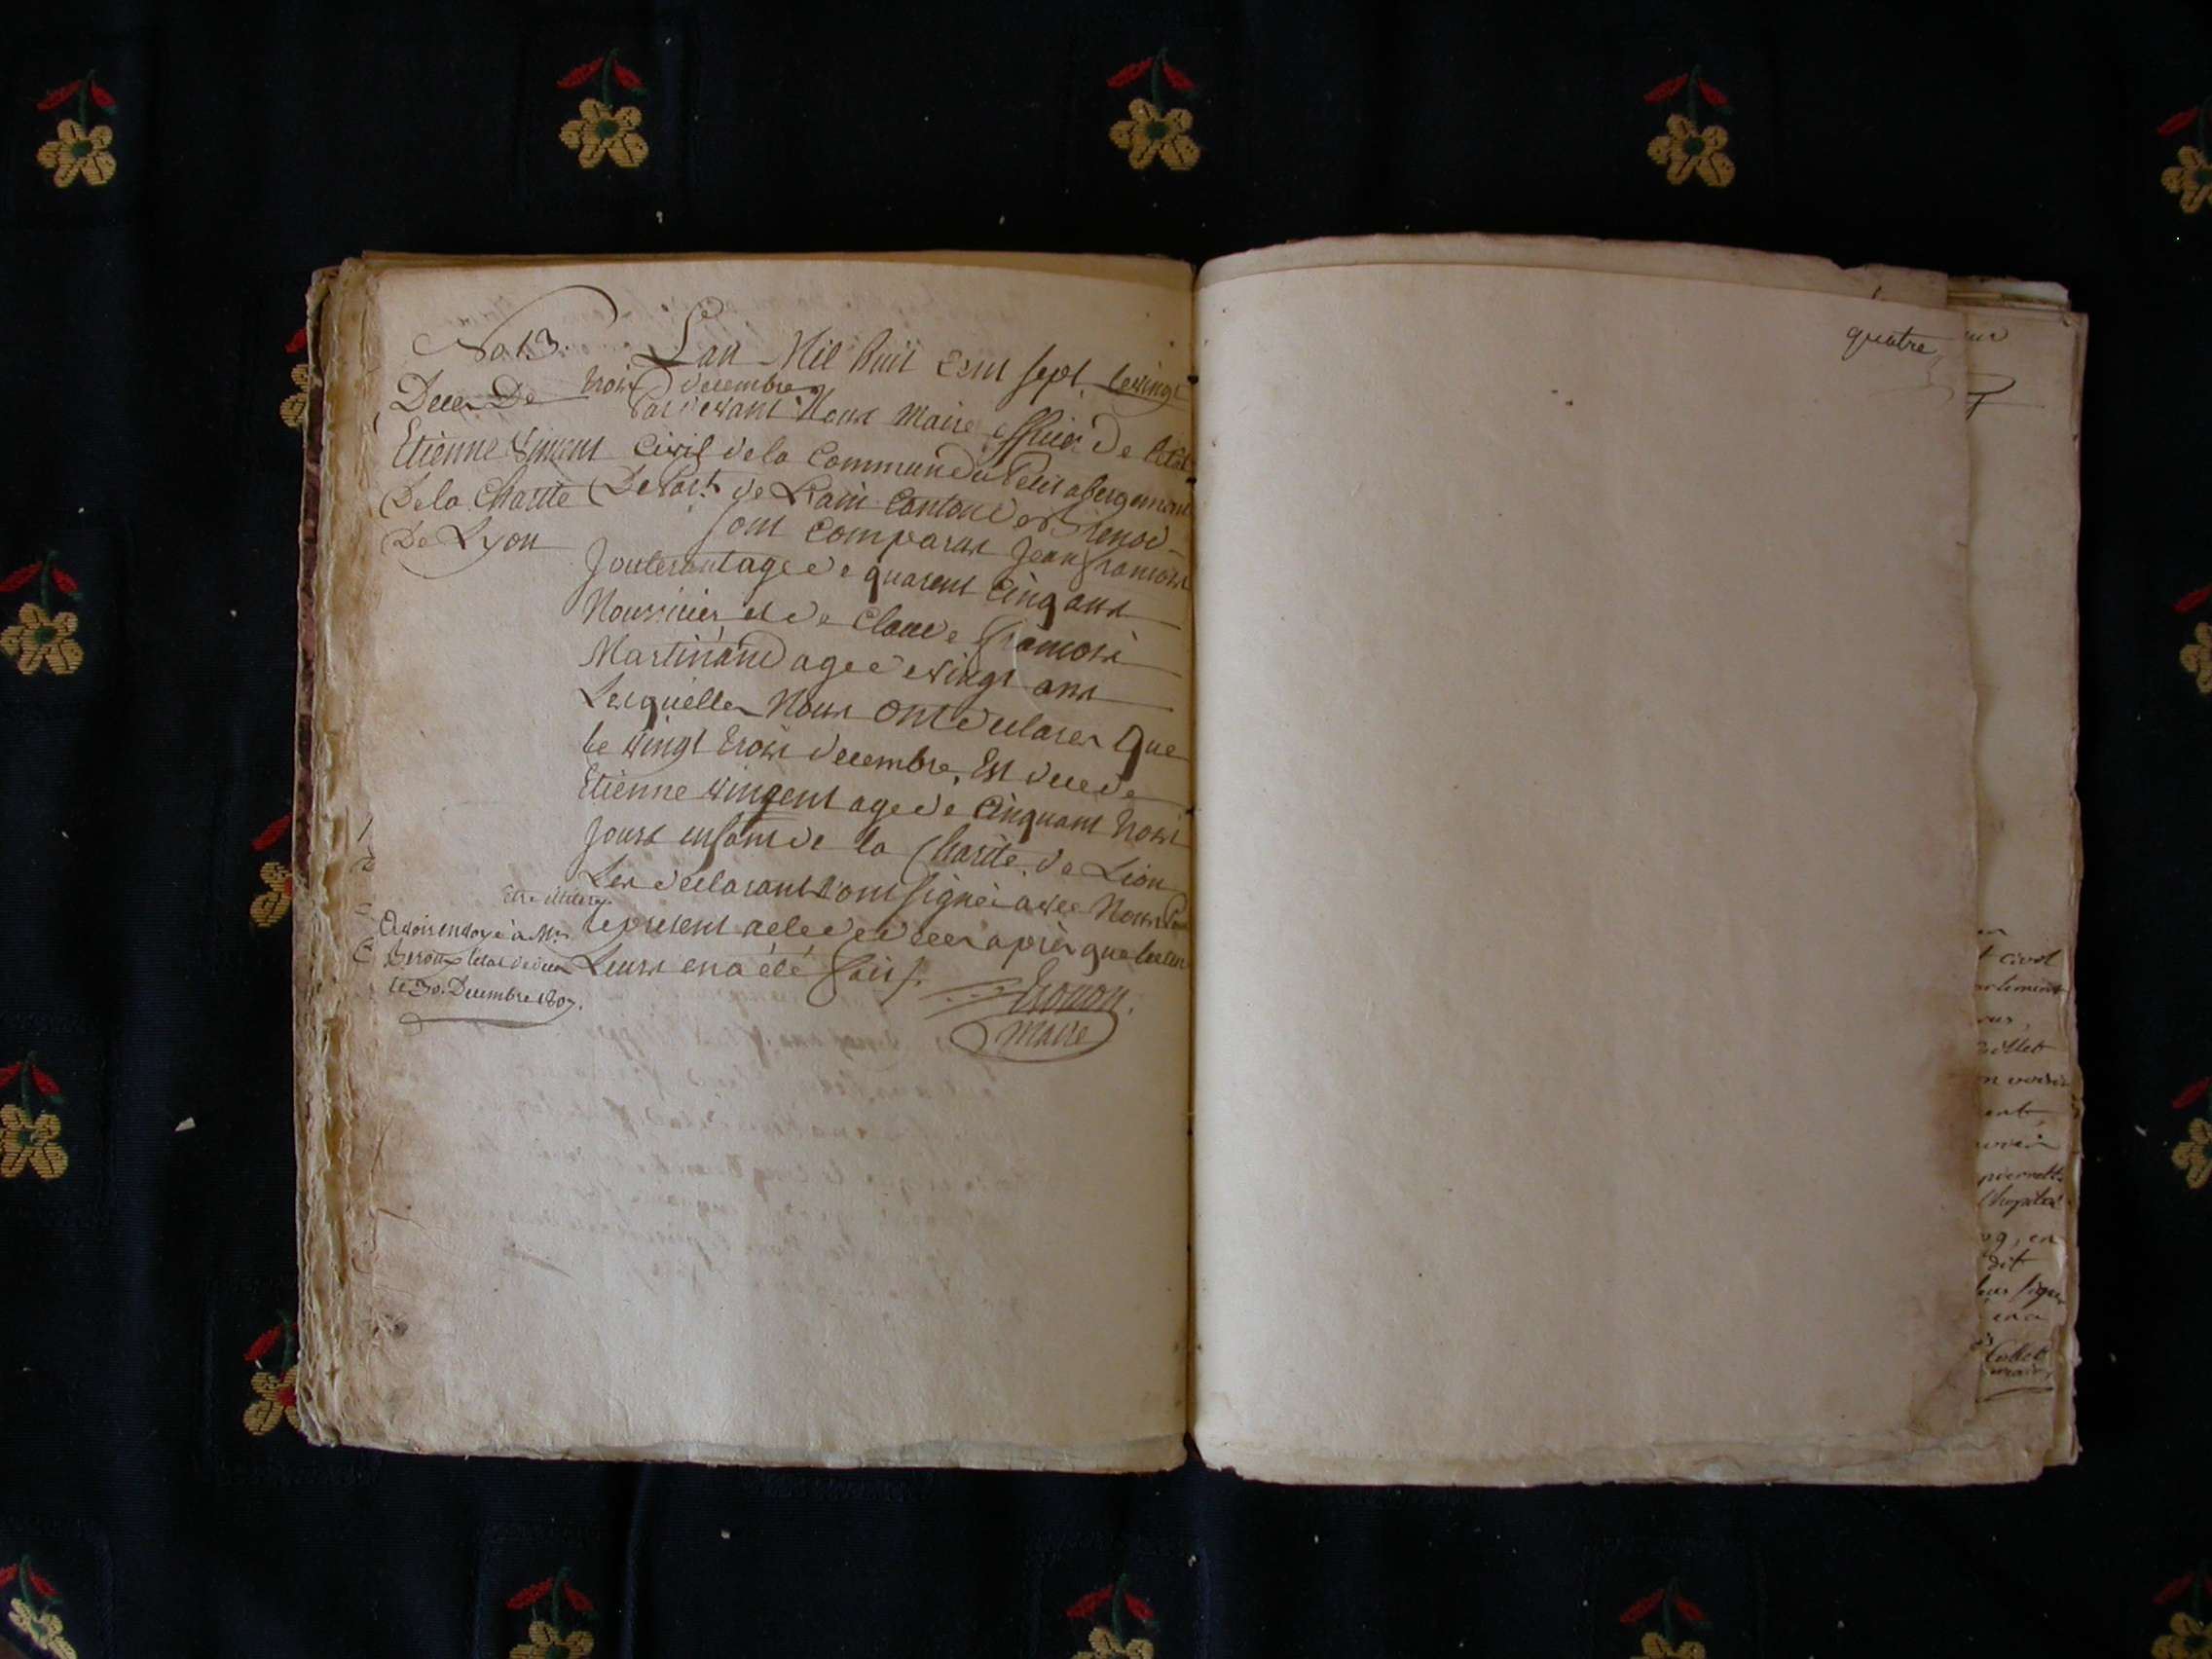 No. 13.
Deces De
Etienne Vincent
De la Charité
De Lyon
L'an Mil huit Cent sept, le vingt
trois decembre
Pardevant Nous Maire officier De l'état
Civil de la Commune du Petit abergement
Depart. de L'ain Canton de Brenod
sont Comparus Jean François
Jouterant age de quarent Cinq ans
Nourricier et de Claude François
Martinand age de vingt ans
Lesquelles Nous Ont declarer Que
le vingt trois decembre, Est decede
Etienne Vingent age de Cinquant trois
Jours enfant de la Charité de Lion
Les declarant sont signé avec Nous
le present acte de deces après que lecture
Leurs en a été fait.
Maire
Avoir envoyé à Mr.
le 30. Decembre 1807.
quatre
t civil
lhopital
dit
Collet